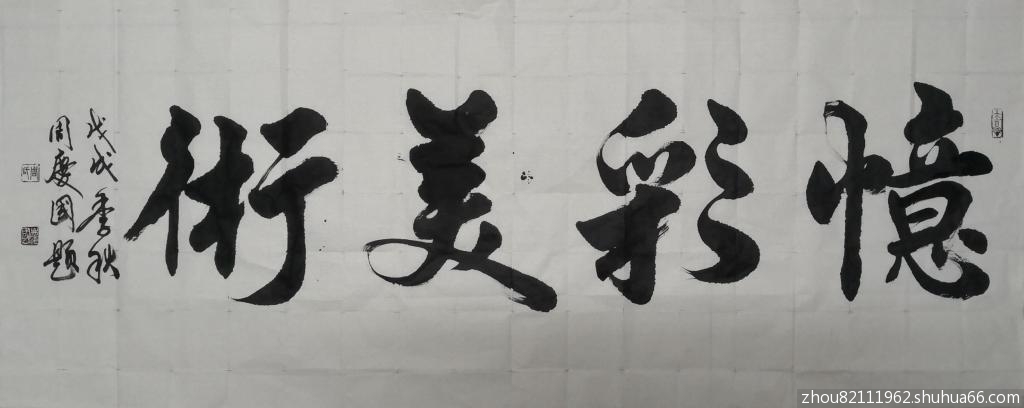 憶彩美術
戊戌季秋
周慶國題
zhou82111962.shuhua66.com